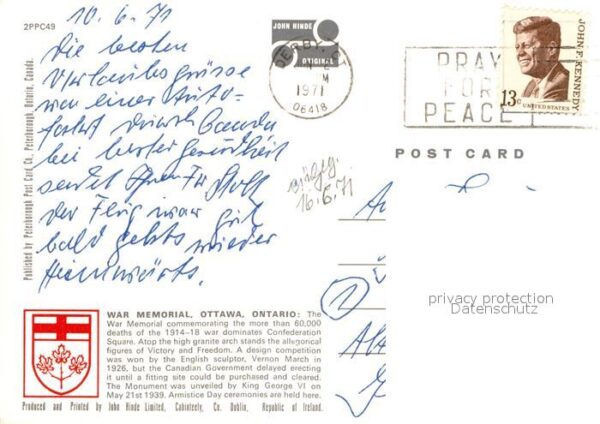 2PPC49
10.6.71
Die besten
Urlaubsgrüsse
von einer Auto-
fahrt durch Canada
bei bester Gesundheit
sendet
Der Flug war gut
bald gehts wieder
Heimwärts.
Published by Peterborough Post Card Co., Peterborough, Ontario, Canada.
JOHN HINDE
ORIGINAL
DERBY, CT
1971
06418
PRAY
FOR
PEACE
JOHN F. KENNEDY
13c UNITED STATES
POST CARD
16.6.71
1
privacy protection
Datenschutz
WAR MEMORIAL, OTTAWA, ONTARIO: The
War Memorial commemorating the more than 60,000
deaths of the 1914-18 war dominates Confederation
Square. Atop the high granite arch stands the allegorical
figures of Victory and Freedom. A design competition
was won by the English sculptor, Vernon March in
1926, but the Canadian Government delayed erecting
it until a fitting site could be purchased and cleared.
The Monument was unveiled by King George VI on
May 21st 1939. Armistice Day ceremonies are held here.
Produced and Printed by John Hinde Limited, Cabinteely, Co. Dublin, Republic of Ireland.